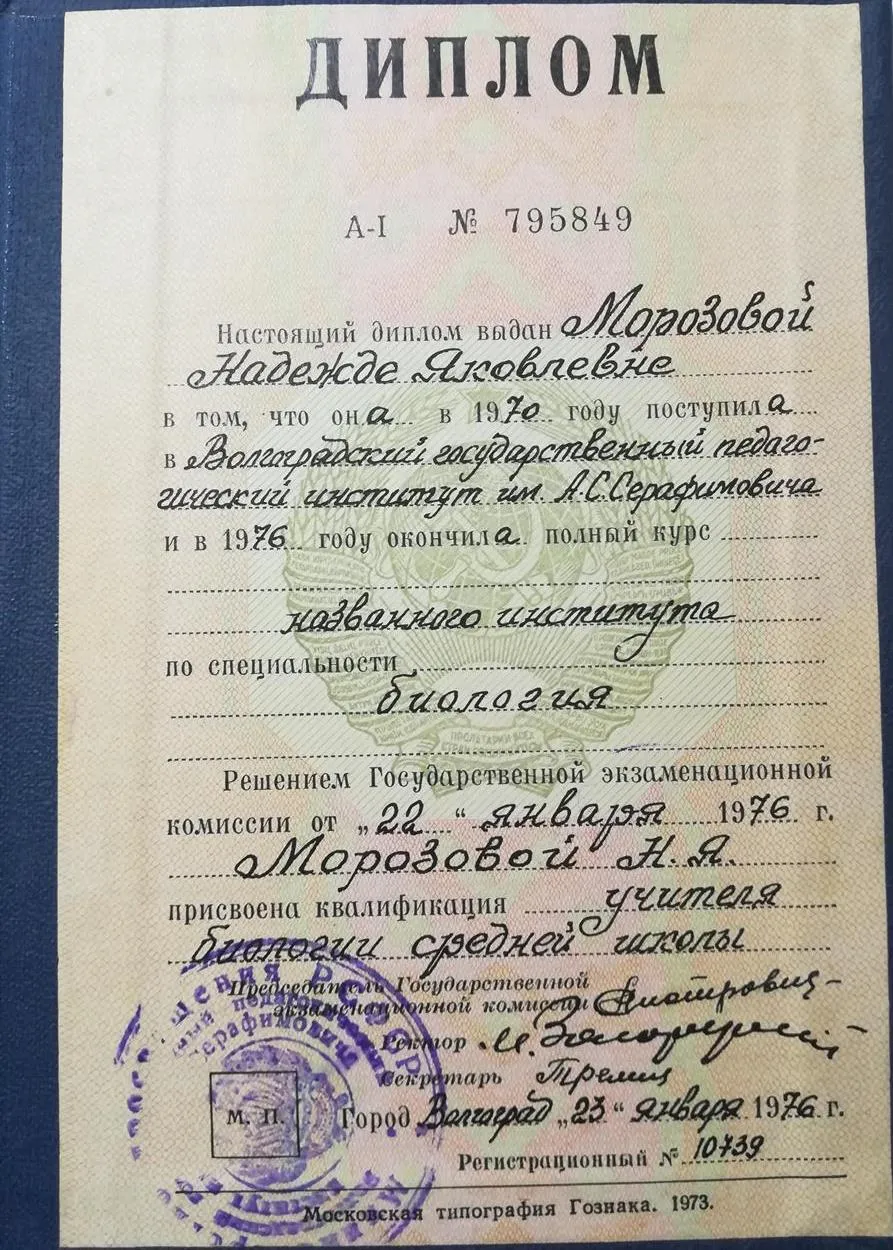 ДИПЛОМ
А-I № 795849
Настоящий диплом выдан Морозовой
Надежде Яковлевне
в том, что она в 1970 году поступила
в Волгоградский государственный педаго-
гический институт им. А.С.Серафимовича
и в 1976 году окончила полный курс
названного института
по специальности
биология
Решением Государственной экзаменационной
комиссии от „22“ января 1976 г.
Морозовой Н.Я.
присвоена квалификация учителя
биологии средней школы
Председатель Государственной
экзаменационной комиссии
Ректор
Секретарь
М. П.
Город Волгоград „23“ января 1976 г.
Регистрационный № 10739
Московская типография Гознака. 1973.